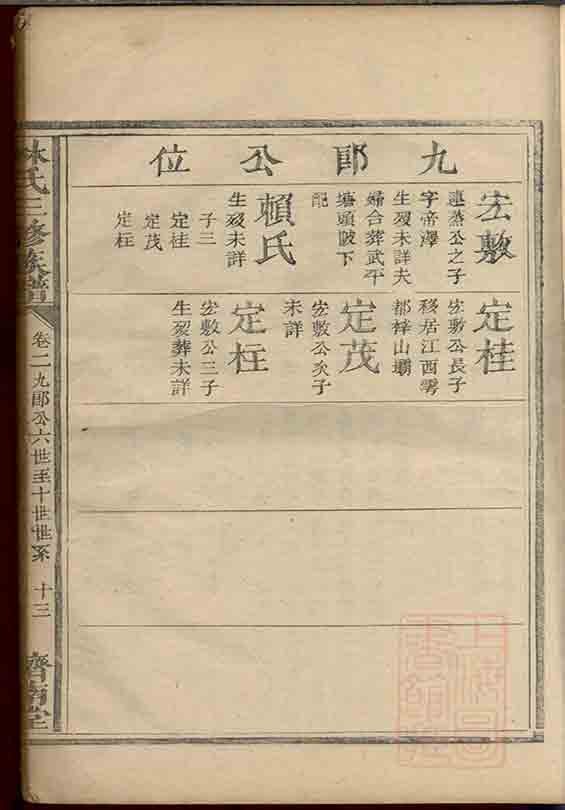 九郎公位
宏敷
連蒸公之子
字帝澤
生歿未詳夫
婦合葬武平
塘頭陂下
配
賴氏
生歿未詳
子三
定桂
定茂
定枉
定桂
宏敷公長子
移居江西雩
都梓山壩
定茂
宏敷公次子
未詳
定枉
宏敷公三子
生歿葬未詳
林氏三修族譜
卷二九郎公六世至十世世系
十三
濟南堂
上海圖
書館藏